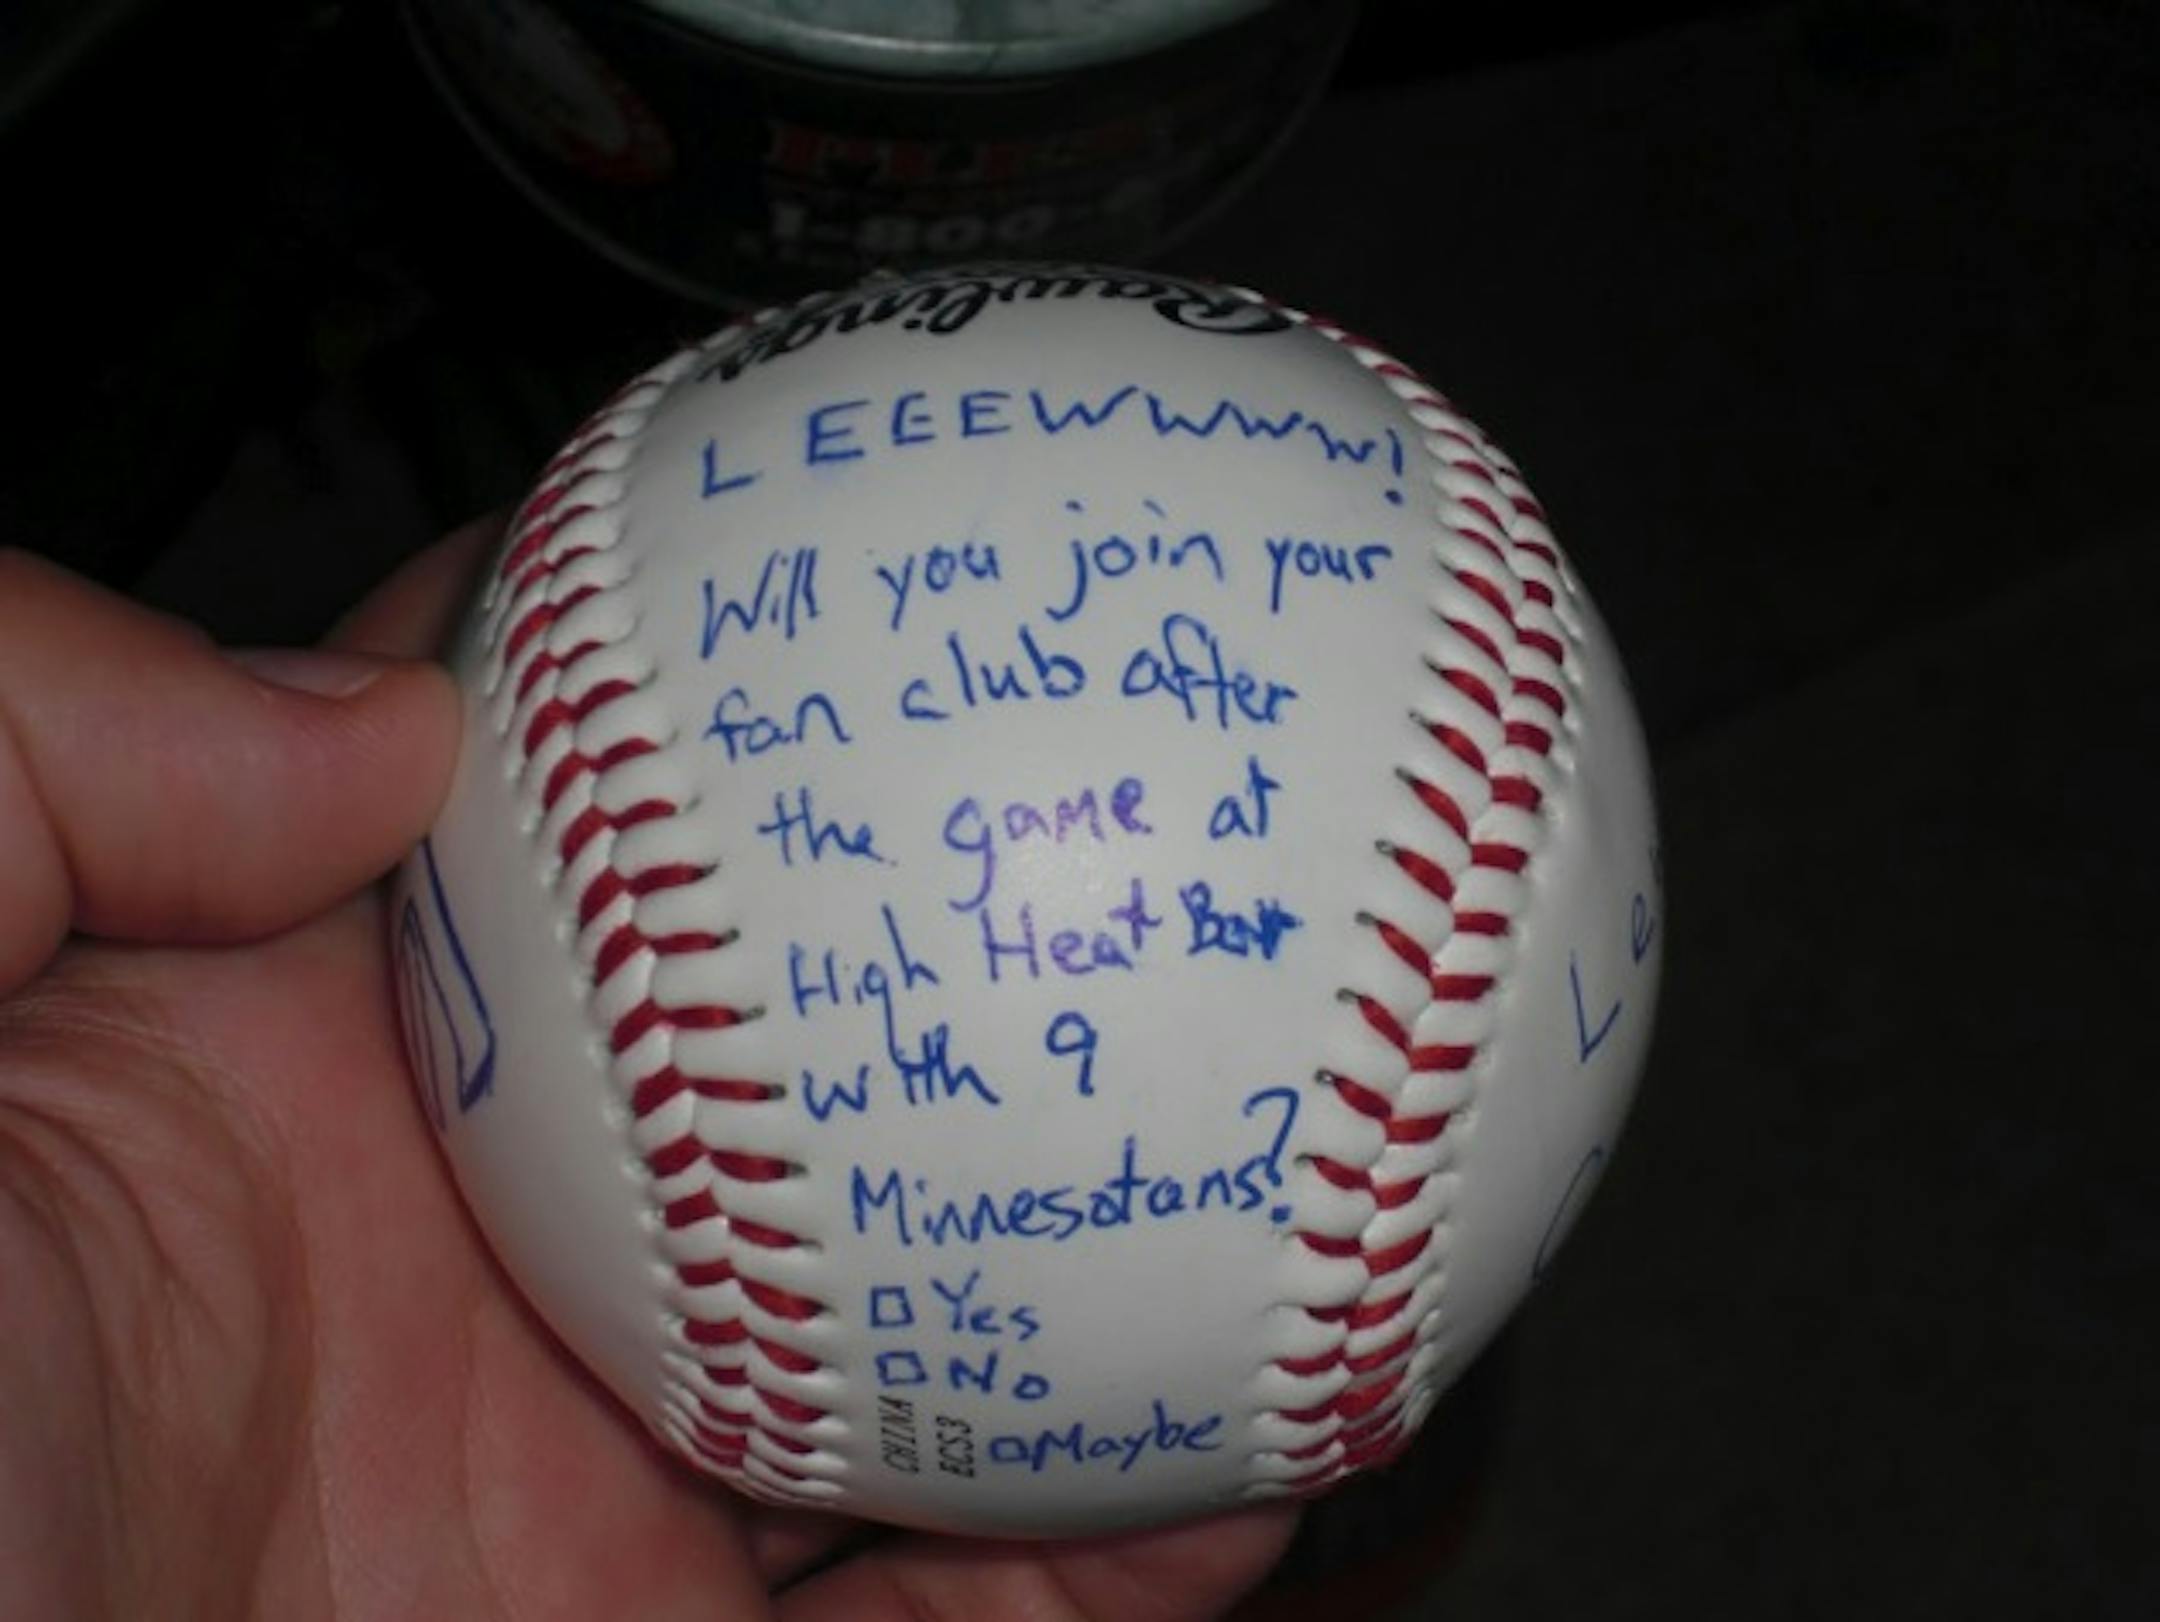 1-800-
Rawlings
LEEEWWWW!
Will you join your
fan club after
the game at
High Heat Bar
with 9
Minnesotans?
□ Yes
□ No
□ Maybe
CHINA
ECS3
Le